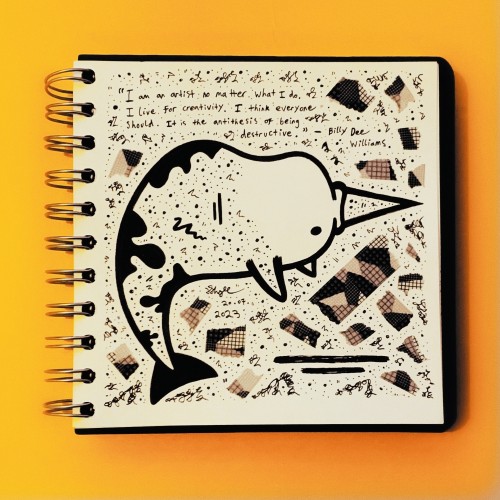 "I am an artist no matter what I do.
I live for creativity. I think everyone
should. It is the antithesis of being
destructive." - Billy Dee
Williams
20.07
2023